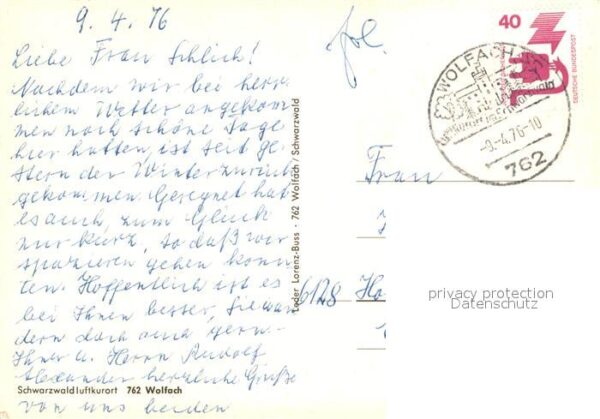 9.4.76
Liebe Frau Schlich!
Nachdem wir bei herr-
lichem Wetter angekom-
men noch schöne Tage
hier hatten, ist seit ge-
stern der Winter zurück
gekommen. Geregnet hat
es auch, zum Glück
nur kurz, so daß wir
spazieren gehen konn-
ten. Hoffentlich ist es
bei Ihnen besser, Sie wan-
dern doch auch gern.
Ihnen u. Herrn Rudolf
Alexander herzliche Grüße
von uns beiden
Schwarzwaldluftkurort 762 Wolfach
Leder Lorenz-Buss · 762 Wolfach / Schwarzwald
40
DEUTSCHE BUNDESPOST
WOLFACH
-9.-4.76-10
762
Frau
6128 Hö
privacy protection
Datenschutz